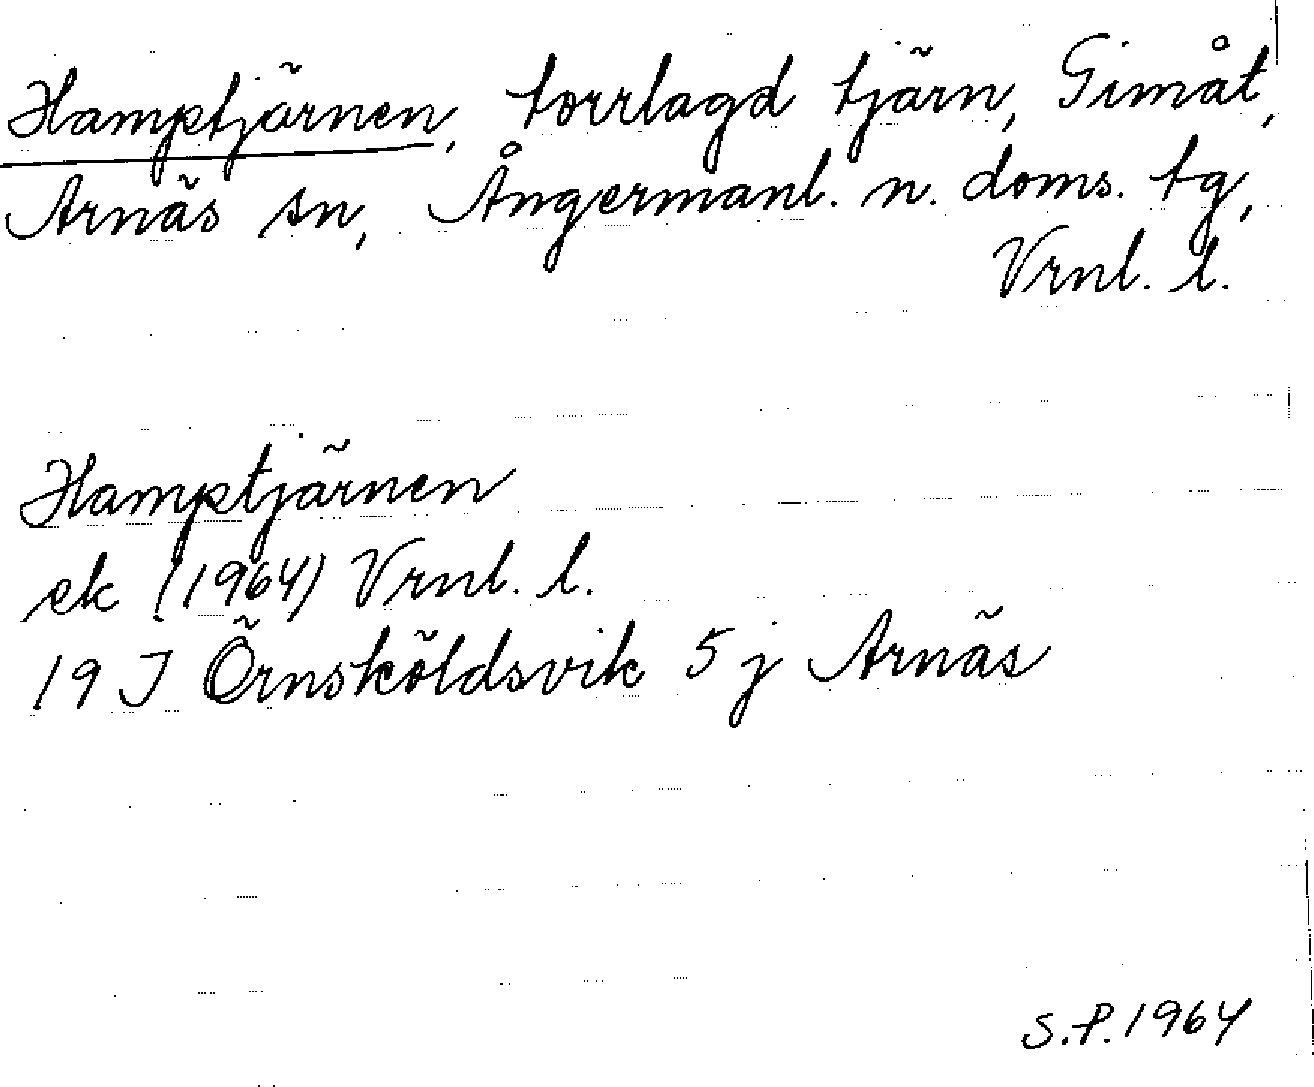 Hamptjärnen, torrlagd tjärn, Gimåt,
Arnäs sn, Ångermanl. n. doms. tg,
Vrnl. l.
Hamptjärnen
ek (1964) Vrnl. l.
19 J Örnsköldsvik 5 j Arnäs
S.P. 1964